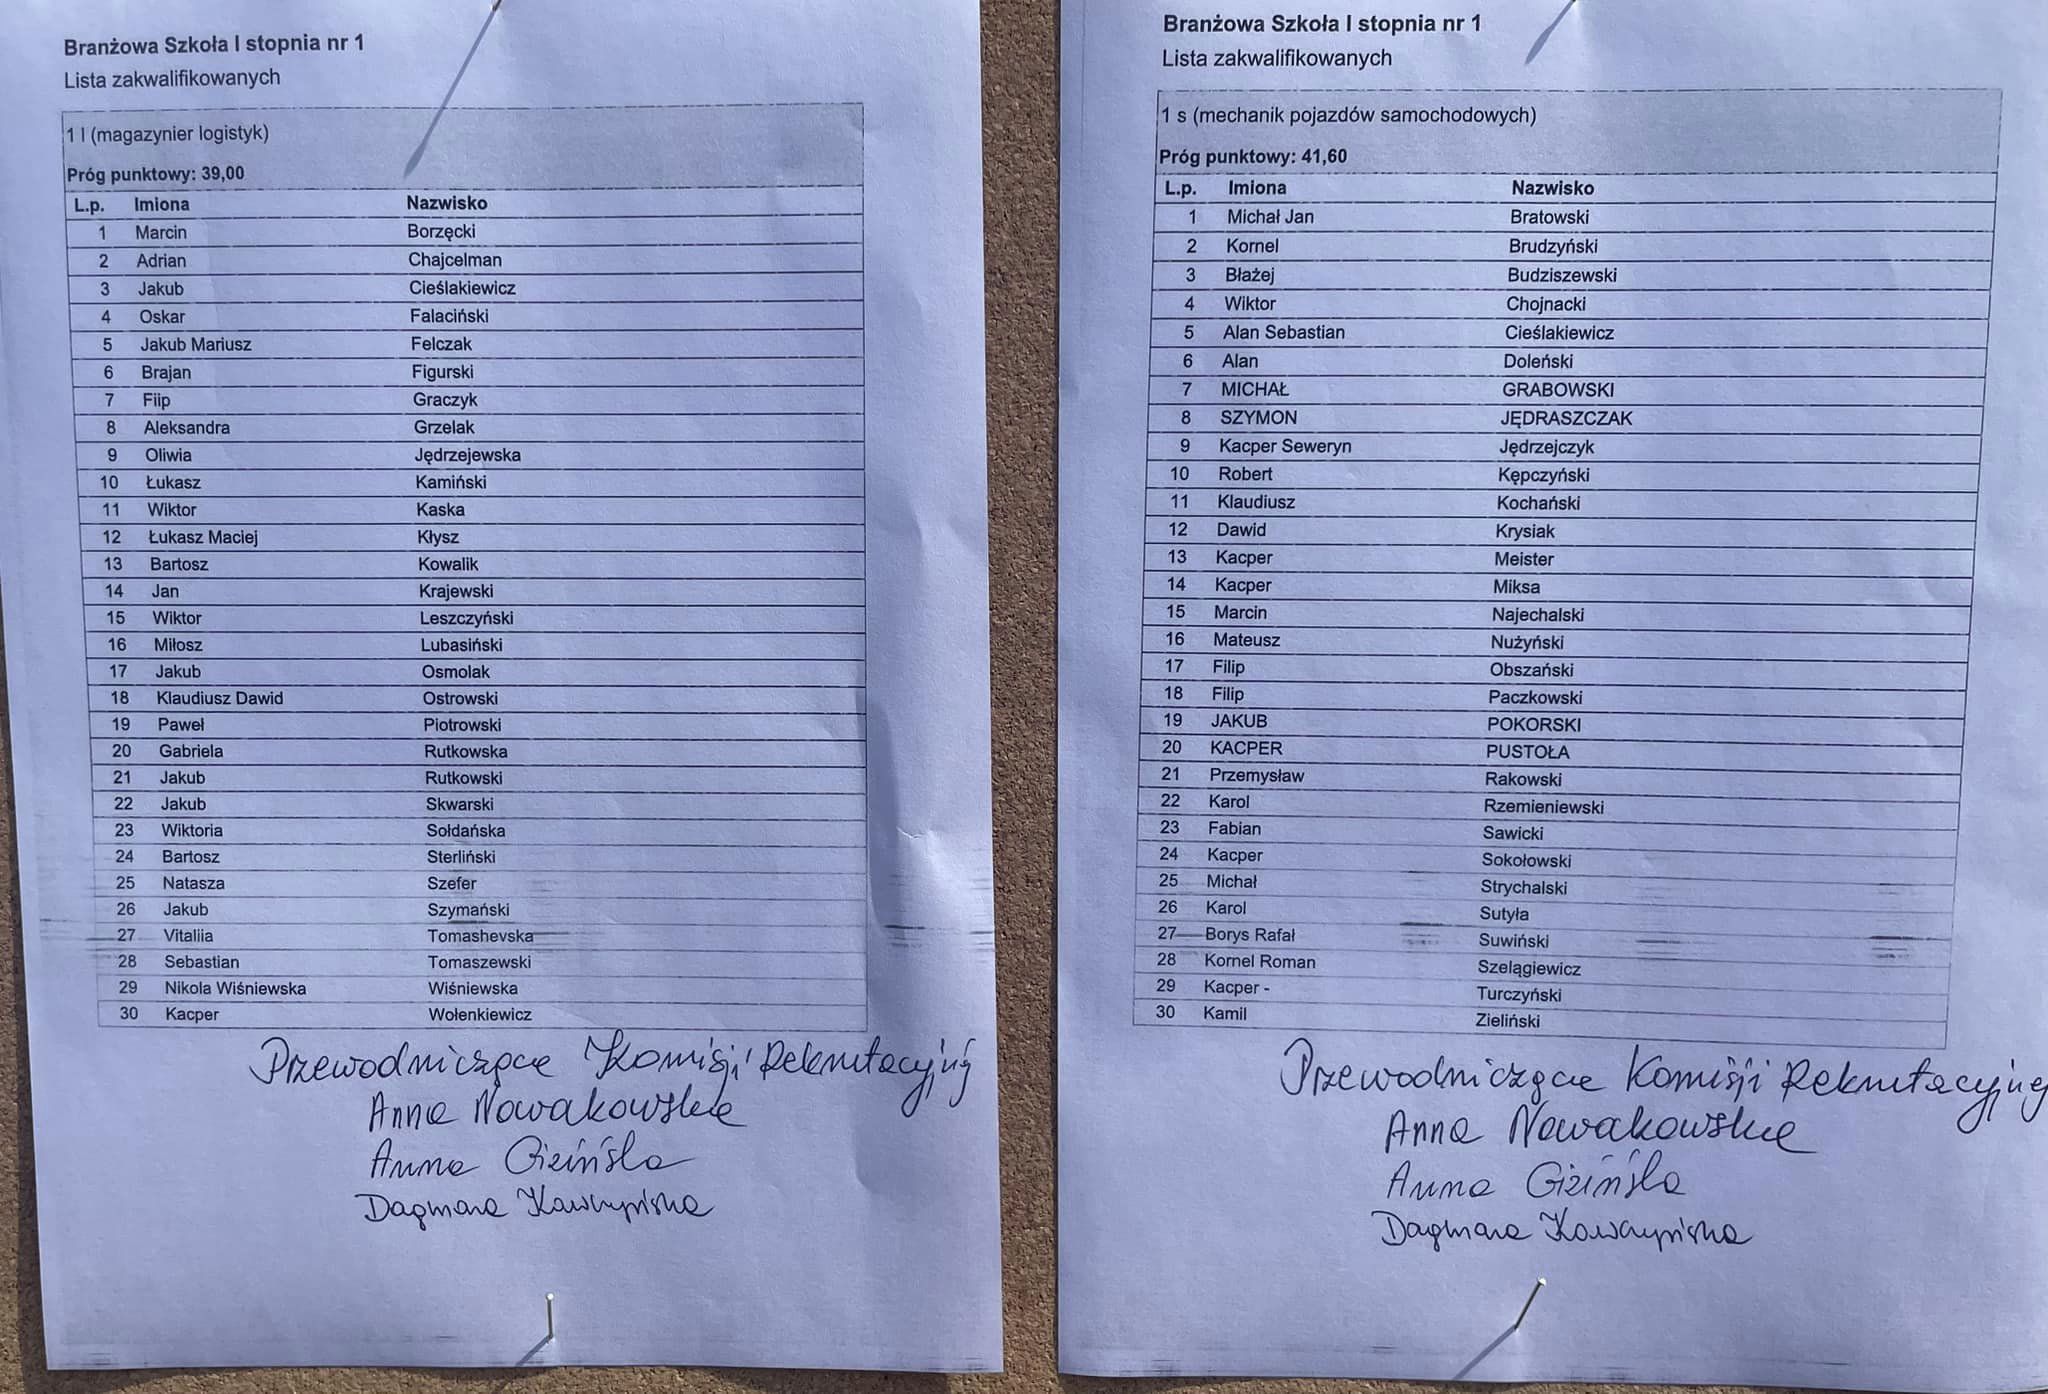 Branżowa Szkoła I stopnia nr 1
Lista zakwalifikowanych
1 l (magazynier logistyk)
Próg punktowy: 39,00
L.p. Imiona Nazwisko
1 Marcin Borzęcki
2 Adrian Chajcelman
3 Jakub Cieślakiewicz
4 Oskar Falaciński
5 Jakub Mariusz Felczak
6 Brajan Figurski
7 Fiip Graczyk
8 Aleksandra Grzelak
9 Oliwia Jędrzejewska
10 Łukasz Kamiński
11 Wiktor Kaska
12 Łukasz Maciej Kłysz
13 Bartosz Kowalik
14 Jan Krajewski
15 Wiktor Leszczyński
16 Miłosz Lubasiński
17 Jakub Osmolak
18 Klaudiusz Dawid Ostrowski
19 Paweł Piotrowski
20 Gabriela Rutkowska
21 Jakub Rutkowski
22 Jakub Skwarski
23 Wiktoria Sołdańska
24 Bartosz Sterliński
25 Natasza Szefer
26 Jakub Szymański
27 Vitaliia Tomashevska
28 Sebastian Tomaszewski
29 Nikola Wiśniewska Wiśniewska
30 Kacper Wołenkiewicz
Przewodnicząca Komisji Rekrutacyjnej
Anna Nowakowska
Anna Gizińska
Dagmara Kawczyńska
Branżowa Szkoła I stopnia nr 1
Lista zakwalifikowanych
1 s (mechanik pojazdów samochodowych)
Próg punktowy: 41,60
L.p. Imiona Nazwisko
1 Michał Jan Bratowski
2 Kornel Brudzyński
3 Błażej Budziszewski
4 Wiktor Chojnacki
5 Alan Sebastian Cieślakiewicz
6 Alan Doleński
7 MICHAŁ GRABOWSKI
8 SZYMON JĘDRASZCZAK
9 Kacper Seweryn Jędrzejczyk
10 Robert Kępczyński
11 Klaudiusz Kochański
12 Dawid Krysiak
13 Kacper Meister
14 Kacper Miksa
15 Marcin Najechalski
16 Mateusz Nużyński
17 Filip Obszański
18 Filip Paczkowski
19 JAKUB POKORSKI
20 KACPER PUSTOŁA
21 Przemysław Rakowski
22 Karol Rzemieniewski
23 Fabian Sawicki
24 Kacper Sokołowski
25 Michał Strychalski
26 Karol Sutyła
27 Borys Rafał Suwiński
28 Kornel Roman Szelągiewicz
29 Kacper - Turczyński
30 Kamil Zieliński
Przewodnicząca Komisji Rekrutacyjnej
Anna Nowakowska
Anna Gizińska
Dagmara Kawczyńska